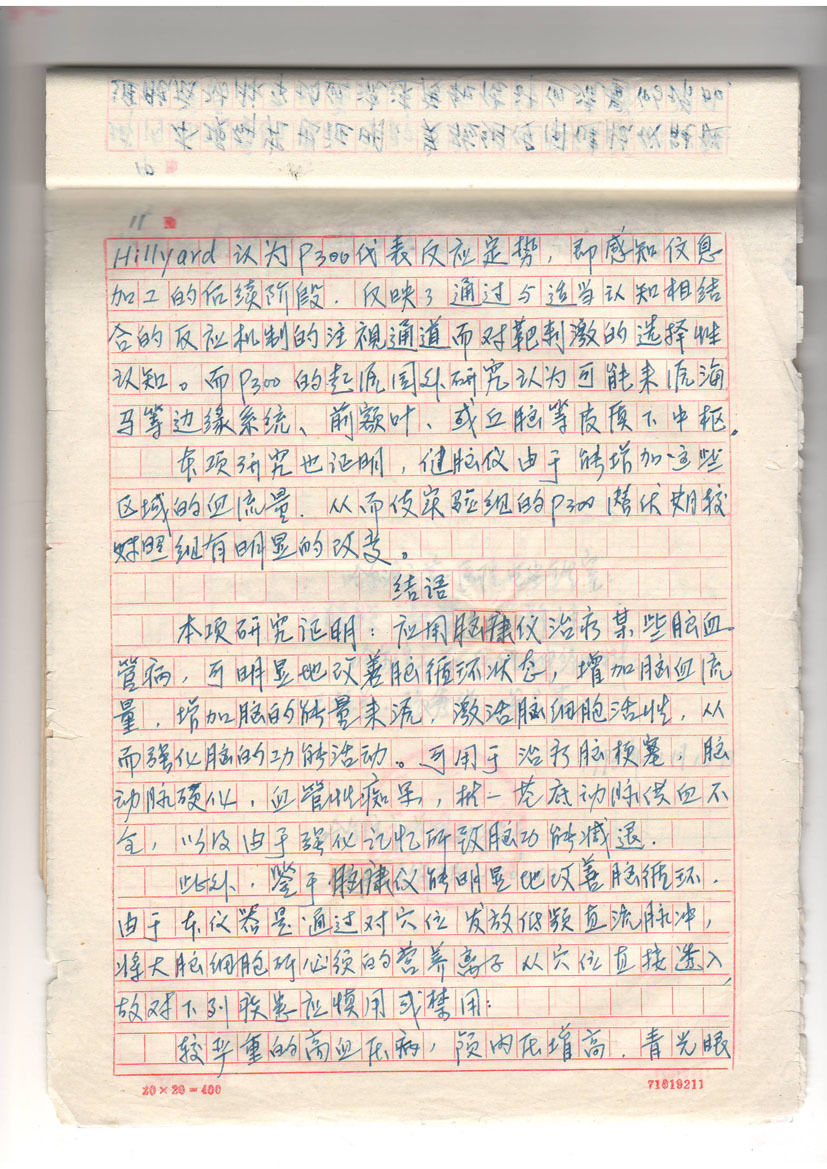 11
Hillyard 认为P300代表反应定势，即感知信息
加工的后续阶段．反映了通过与适当认知相结
合的反应机制的注视通道而对靶刺激的选择性
认知。而P300的起源国外研究认为可能来源海
马等边缘系统、前额叶、或丘脑等皮质下中枢．
本项研究也证明，健脑仪由于能增加这些
区域的血流量．从而使实验组的P300潜伏期较
对照组有明显的改变。
结语
本项研究证明：应用脑康仪治疗某些脑血
管病，可明显地改善脑循环状态，增加脑血流
量，增加脑的能量来源，激活脑细胞活性，从
而强化脑的功能活动。可用于治疗脑梗塞，脑
动脉硬化，血管性痴呆，椎一基底动脉供血不
全，以及由于强化记忆所致脑功能减退．
此外．鉴于脑康仪能明显地改善脑循环．
由于本仪器是通过对穴位发放低频直流脉冲，
将大脑细胞所必须的营养离子从穴位直接进入，
故对下列疾患应慎用或禁用：
较严重的高血压病，颅内压增高．青光眼
20×20=400
71019211